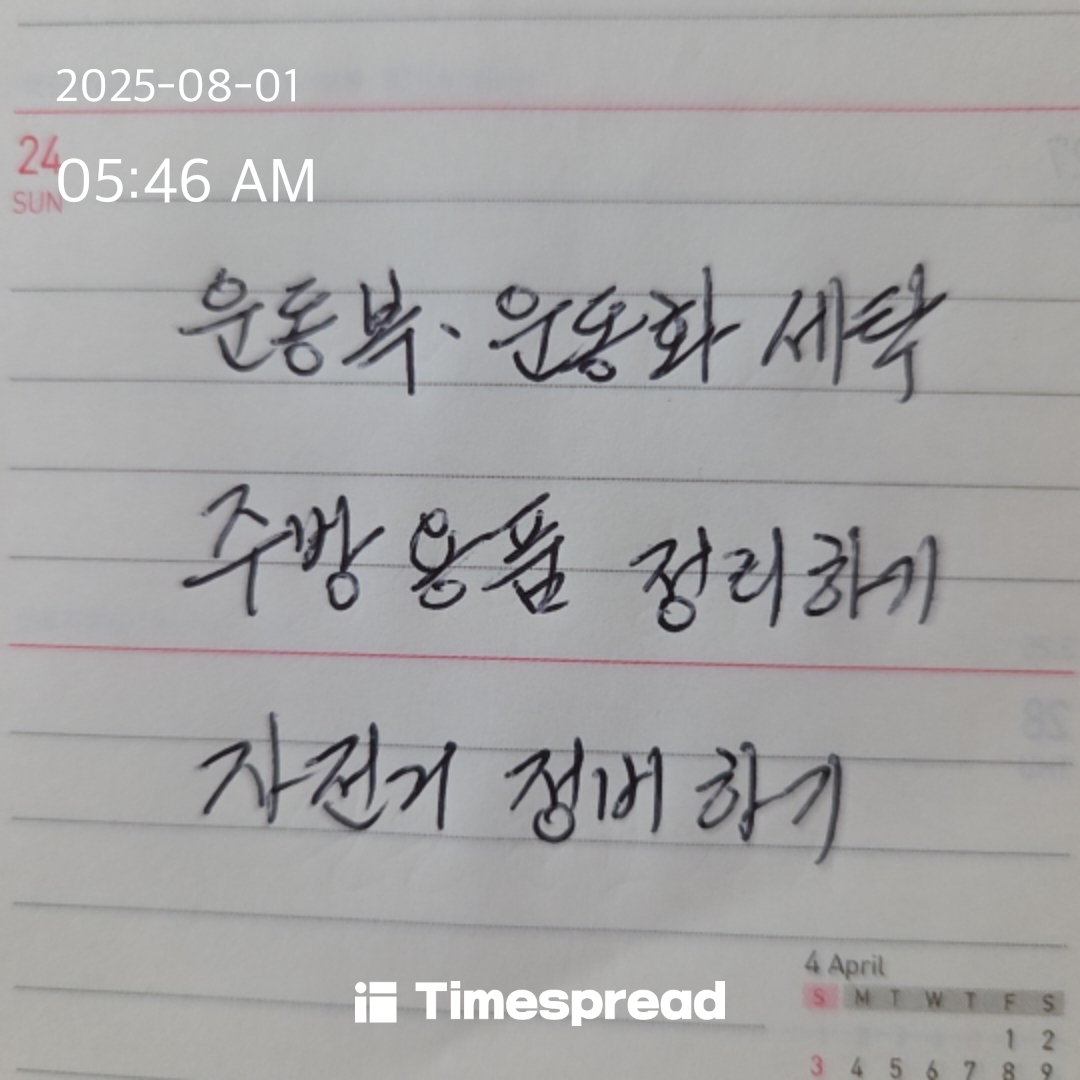 2025-08-01
24
SUN
05:46 AM
운동복·운동화 세탁
주방용품 정리하기
자전거 정비하기
28
4 April
S M T W T F S
1 2
3 4 5 6 7 8 9
Timespread